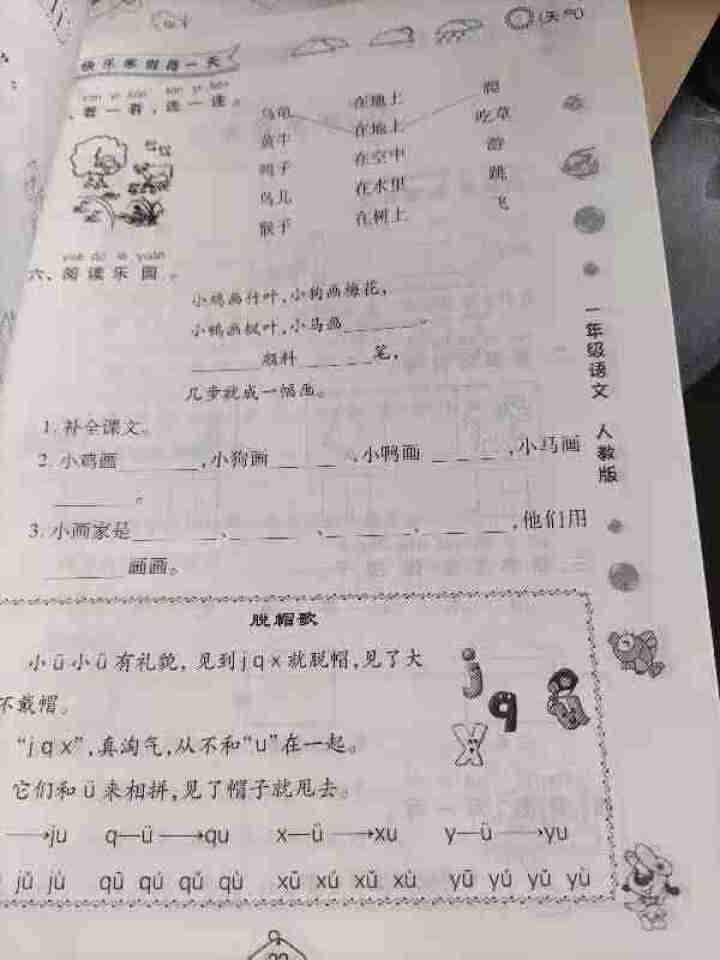 (天气)
快乐寒假每一天
kàn yi kàn lián yi lián
、看一看,连一连。
乌龟 在地上 爬
黄牛 在地上 吃草
鸭子 在空中 游
鸟儿 在水里 跳
猴子 在树上 飞
yuè dú lè yuán
六、阅读乐园。
小鸡画竹叶,小狗画梅花,
小鸭画枫叶,小马画______。
______颜料______笔,
几步就成一幅画。
1. 补全课文。
2. 小鸡画______,小狗画______、小鸭画______,小马画
______。
3. 小画家是______、______、______、______,他们用
______画画。
一年级语文 人教版
脱帽歌
小ü小ü有礼貌, 见到jqx就脱帽,见了大
不戴帽。
“jqx”,真淘气,从不和“u”在一起。
它们和ü来相拼,见了帽子就甩去。
→ju q—ü→qu x—ü→xu y—ü→yu
jǔ jù qū qú qǔ qù xū xú xǔ xù yū yú yǔ yù